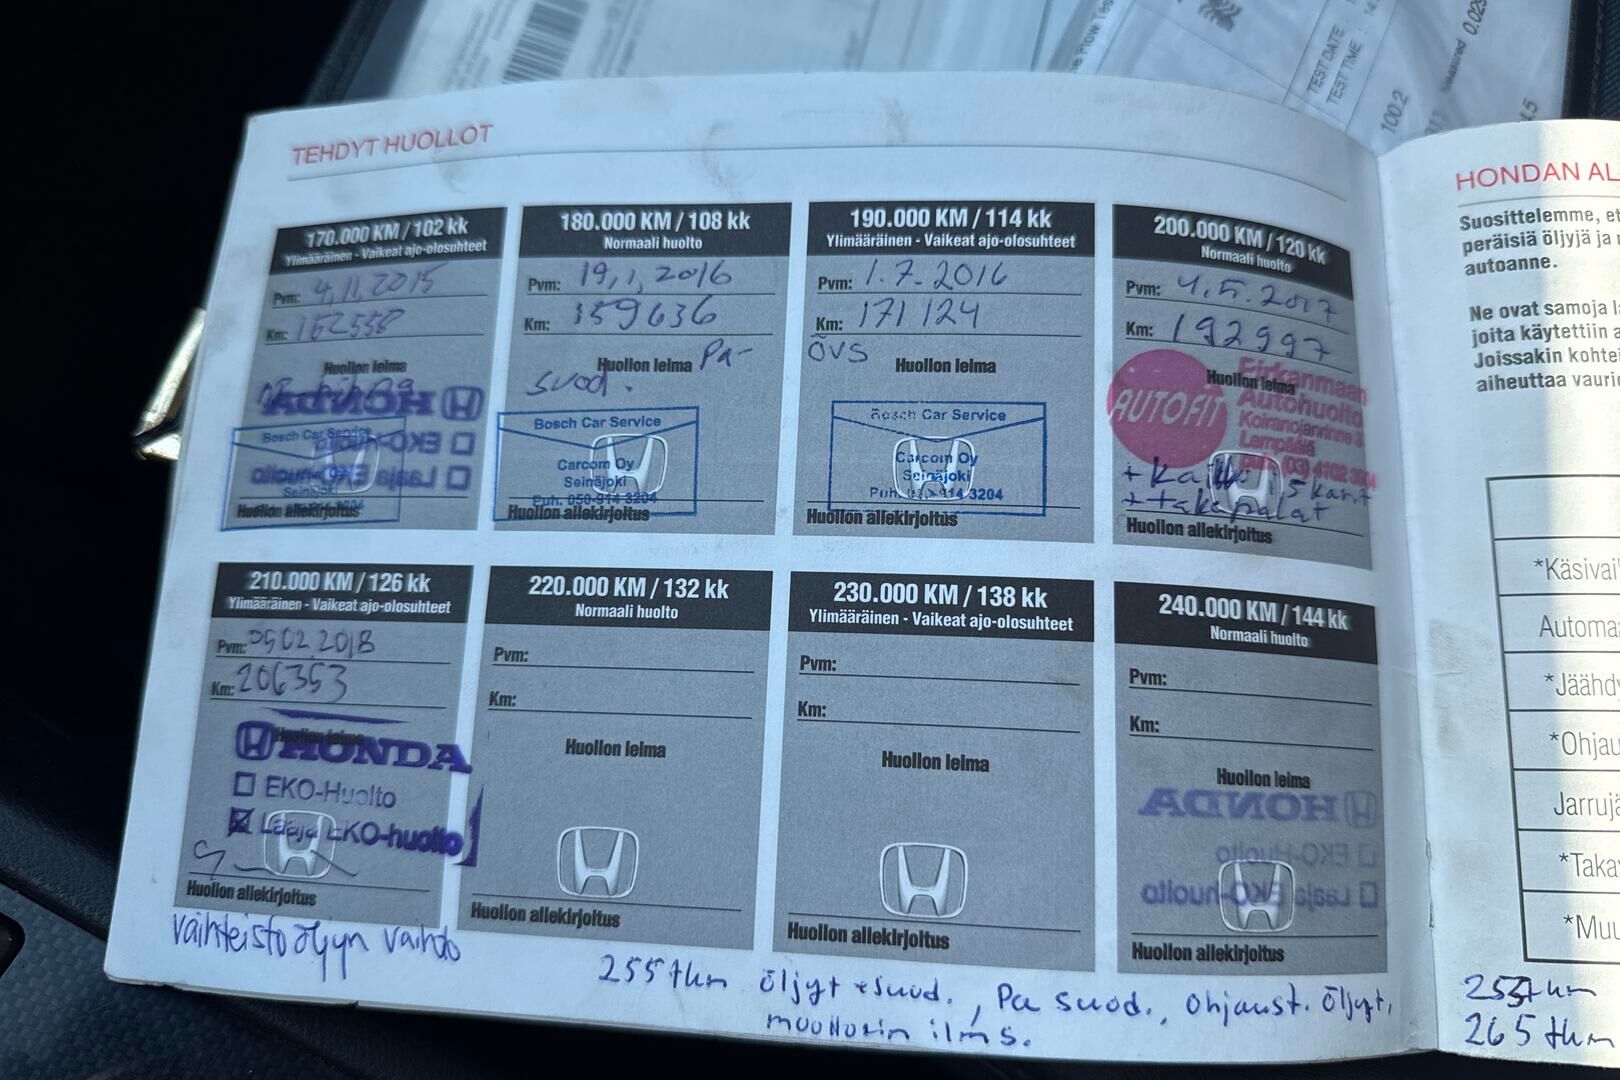 TEST DATE :
TEST TIME : 14
100.2
TEHDYT HUOLLOT
170.000 KM / 102 kk
Ylimääräinen - Vaikeat ajo-olosuhteet
Pvm: 4.11.2015
Km: 152558
Huollon leima
HONDA
EKO-Huolto
Laaja EKO-huolto
Bosch Car Service
Seinäjoki
Huollon allekirjoitus
180.000 KM / 108 kk
Normaali huolto
Pvm: 19.1.2016
Km: 159636
Huollon leima Pa-
suod.
Bosch Car Service
Carcom Oy
Seinäjoki
Puh. 050-914 3204
Huollon allekirjoitus
190.000 KM / 114 kk
Ylimääräinen - Vaikeat ajo-olosuhteet
Pvm: 1.7.2016
Km: 171124
ÖVS
Huollon leima
Bosch Car Service
Carcom Oy
Seinäjoki
Puh. 050-914 3204
Huollon allekirjoitus
200.000 KM / 120 kk
Normaali huolto
Pvm: 4.5.2017
Km: 192997
Huollon leima
AUTOFIT
Pirkanmaan
Autohuolto
Koiranojanrinne 3
Lempäälä
(03) 4102 3804
+ takapalat
Huollon allekirjoitus
210.000 KM / 126 kk
Ylimääräinen - Vaikeat ajo-olosuhteet
Pvm: 05.02.2018
Km: 206353
Huollon leima
HONDA
EKO-Huolto
Laaja EKO-huolto
Huollon allekirjoitus
vaihteistoöljyn vaihto
220.000 KM / 132 kk
Normaali huolto
Pvm:
Km:
Huollon leima
Huollon allekirjoitus
230.000 KM / 138 kk
Ylimääräinen - Vaikeat ajo-olosuhteet
Pvm:
Km:
Huollon leima
Huollon allekirjoitus
240.000 KM / 144 kk
Normaali huolto
Pvm:
Km:
Huollon leima
HONDA
EKO-Huolto
Laaja EKO-huolto
Huollon allekirjoitus
255tkm öljyt + suod., Pa suod., ohjaust. öljyt,
moottorin ilms.
HONDAN AL
Suosittelemme, et
peräisiä öljyjä ja
autoanne.
Ne ovat samoja
joita käytettiin a
Joissakin kohte
aiheuttaa vaurio
*Käsivai
Automa
*Jäähdy
*Ohjau
Jarrujä
*Taka
*Muu
265 tkm